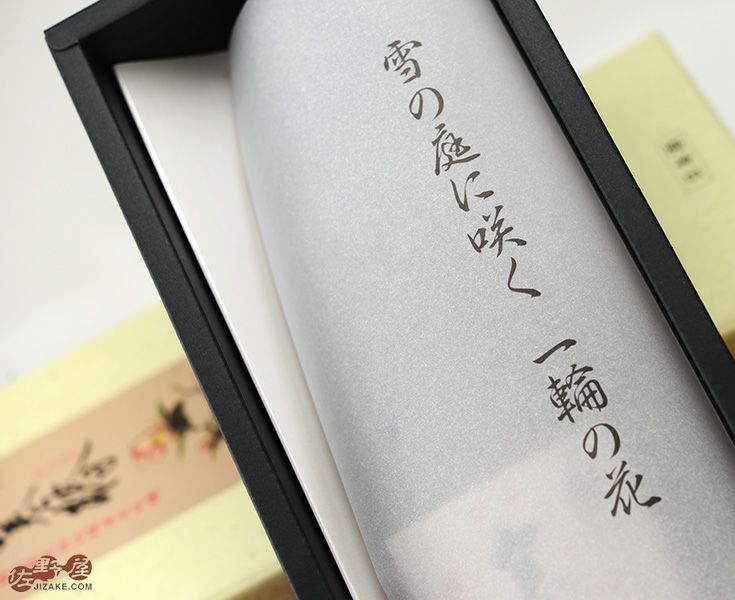 雪の庭に咲く 一輪の花
佐野屋
JIZAKE.COM